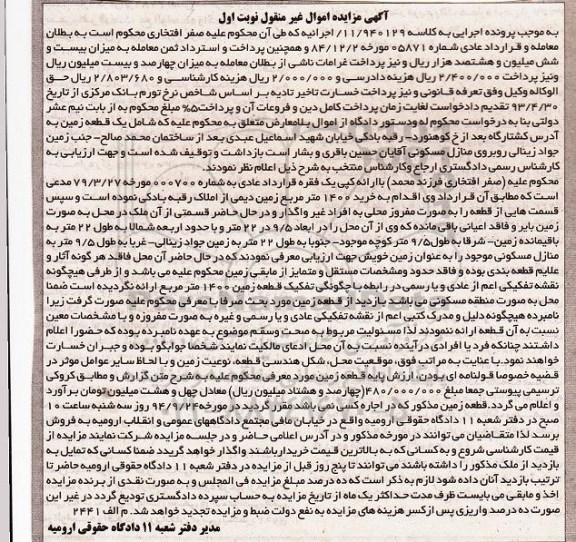 آگهی مزایده اموال غیر منقول نوبت اول
به موجب پرونده اجرایی به کلاسه ۱۱/۹۴۰۱۲۹/ اجرائیه که طی آن محکوم علیه صفر افتخاری محکوم است به بطلان
معامله و قرارداد عادی شماره ۰۵۸۷۱ مورخه ۸۴/۱۲/۲ و همچنین پرداخت و استرداد ثمن معامله به میزان بیست و
شش میلیون و هشتصد هزار ریال و نیز پرداخت غرامات ناشی از بطلان معامله به میزان چهارصد و بیست میلیون ریال
و نیز پرداخت ۲/۴۰۰/۰۰۰ ریال هزینه دادرسی و ۲/۰۰۰/۰۰۰ ریال هزینه کارشناسی و ۲/۸۰۳/۶۸۰ ریال حق
الوکاله وکیل وفق تعرفه قانونی و نیز پرداخت خسارت تاخیر تادیه بر اساس شاخص نرخ تورم بانک مرکزی از تاریخ
۹۳/۴/۳۰ تقدیم دادخواست لغایت زمان پرداخت کامل دین و فروعات آن و پرداخت ۵% مبلغ محکوم به از بابت نیم عشر
دولتی بنا به درخواست محکوم له و دستور دادگاه از اموال بلامعارض متعلق به محکوم علیه که شامل یک قطعه زمین به
آدرس کشتارگاه بعد از خ کوهنورد- رقیه بادگی خیابان شهید اسماعیل عبدی بعد از ساختمان محمد صالح- جنب زمین
جواد زینالی روبروی منازل مسکونی آقایان حسین باقری و بشار است بازداشت و توقیف شده است و جهت ارزیابی به
کارشناس رسمی دادگستری ارجاع و کارشناس منتخب به شرح ذیل اعلام نظر نمودند.
محکوم علیه (صفر افتخاری فرزند محمد) با ارائه کپی یک فقره قرارداد عادی به شماره ۰۰۰۷۰۰ مورخه ۷۹/۳/۲۷ مدعی
است که مطابق آن قرارداد وی اقدام به خرید ۱۴۰۰ متر مربع زمین دیمی از املاک رقیه بادگی نموده است و سپس
قسمت هایی از قطعه را به صورت مفروز محلی به افراد غیر واگذار و در حال حاضر قسمتی از آن ملک در محل به صورت
زمین بایر و فاقد اعیانی باقی مانده که وی از آن محل را در ابعاد ۹/۵ در ۲۲ متر و با حدود اربعه شمالا به طول ۲۲ متر به
باقیمانده زمین- شرقا به طول ۹/۵ متر کوچه موجود- جنوبا به طول ۲۲ متر به زمین جواد زینالی- غربا به طول ۹/۵ متر به
منازل مسکونی موجود را به عنوان زمین خویش جهت ارزیابی معرفی نمودند که در حال حاضر آن محل فاقد هر گونه آثار و
علایم قطعه بندی بوده و فاقد حدود و مشخصات مستقل و متمایز از مابقی زمین محکوم علیه می باشد و از طرفی هیچگونه
نقشه تفکیکی اعم از عادی و یا رسمی در رابطه با چگونگی تفکیک قطعه زمین ۱۴۰۰ متر مربع ارائه نگردیده است ضمنا
محل به صورت منطقه مسکونی می باشد بازدید از قطعه زمین مورد بحث صرفا با معرفی محکوم علیه صورت گرفت زیرا
نامبرده هیچگونه دلیل و مدرک کتبی اعم از نقشه تفکیکی عادی و یا رسمی و غیره به صورت مفروزه و با مشخصات معین
نسبت به آن قطعه ارائه ننمودند لذا مسئولیت مربوط به صحت و سقم موضوع به عهده نامبرده بوده که حضورا اعلام
داشتند چنانکه فرد یا افرادی در آینده نسبت به آن محل ادعای مالکیت نمایند شخصا جوابگو بوده و جبران خسارت
خواهند نمود. با عنایت به مراتب فوق، موقعیت محل، شکل هندسی قطعه، نوعیت زمین و با لحاظ سایر عوامل موثر در
قضیه خصوصا قولنامه ای بودن، ارزش پایه قطعه زمین مورد معرفی محکوم علیه به شرح متن گزارش و مطابق کروکی
ترسیمی پیوستی جمعا مبلغ ۴۸۰/۰۰۰/۰۰۰ (چهارصد و هشتاد میلیون ریال) معادل چهل و هشت میلیون تومان برآورد
و اعلام می گردد. قطعه زمین مذکور که در اجاره کسی می باشد مقرر گردید در مورخه ۹۴/۷/۲۴ روز سه شنبه ساعت ۱۰
صبح در دفتر شعبه ۱۱ دادگاه حقوقی ارومیه واقع در خیابان مافی مجتمع دادگاههای عمومی و انقلاب ارومیه به فروش
برسد لذا متقاضیان می توانند در مورخه مذکور و در آدرس اعلامی حاضر و در جلسه مزایده شرکت نمایند مزایده از
قیمت کارشناسی شروع و به کسانی که به بالاترین قیمت خریدار باشند واگذار خواهد گردید ضمنا کسانی که تمایل به
بازدید از ملک مذکور را داشته باشند می توانند تا پنج روز قبل از مزایده در دفتر شعبه ۱۱ دادگاه حقوقی ارومیه حاضر تا
ترتیب بازدید آنان داده شود لازم به ذکر است که ده درصد مبلغ مزایده فی المجلس و به صورت نقدی از برنده مزایده
اخذ و مابقی می بایست ظرف مدت حداکثر یک ماه از تاریخ مزایده به حساب سپرده دادگستری تودیع گردد در غیر این
صورت ده درصد واریزی پس از کسر هزینه های مزایده به نفع دولت ضبط و مزایده تجدید خواهد شد. م الف ۲۴۴۱
مدیر دفتر شعبه ۱۱ دادگاه حقوقی ارومیه